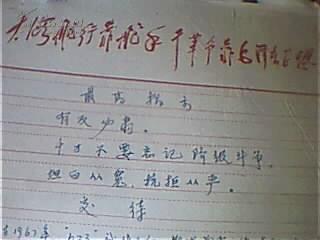 大海航行靠舵手 干革命靠毛泽东思想
最高指示
有反必肃。
千万不要忘记阶级斗争。
坦白从宽，抗拒从严。
交待
在1967年